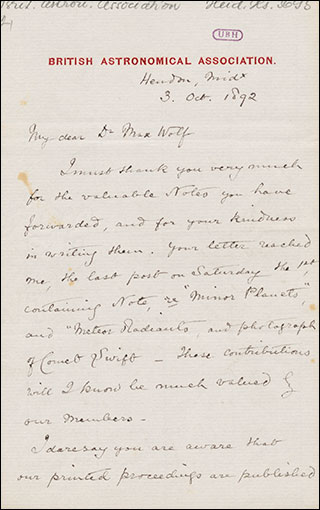 Brit. Astron. Association Heid. Hs.
UBH
BRITISH ASTRONOMICAL ASSOCIATION.
Hendon, Midx
3. Oct. 1892
My dear Dr Max Wolf
I must thank you very much
for the valuable Notes you have
forwarded, and for your kindness
in writing them. Your letter reached
me, the last post on Saturday the 1st,
containing Note, re "Minor Planets,"
and "Meteor Radiants, and photograph
of Comet Swift – These contributions
will I know be much valued by
our Members –
I daresay you are aware that
our printed proceedings are published